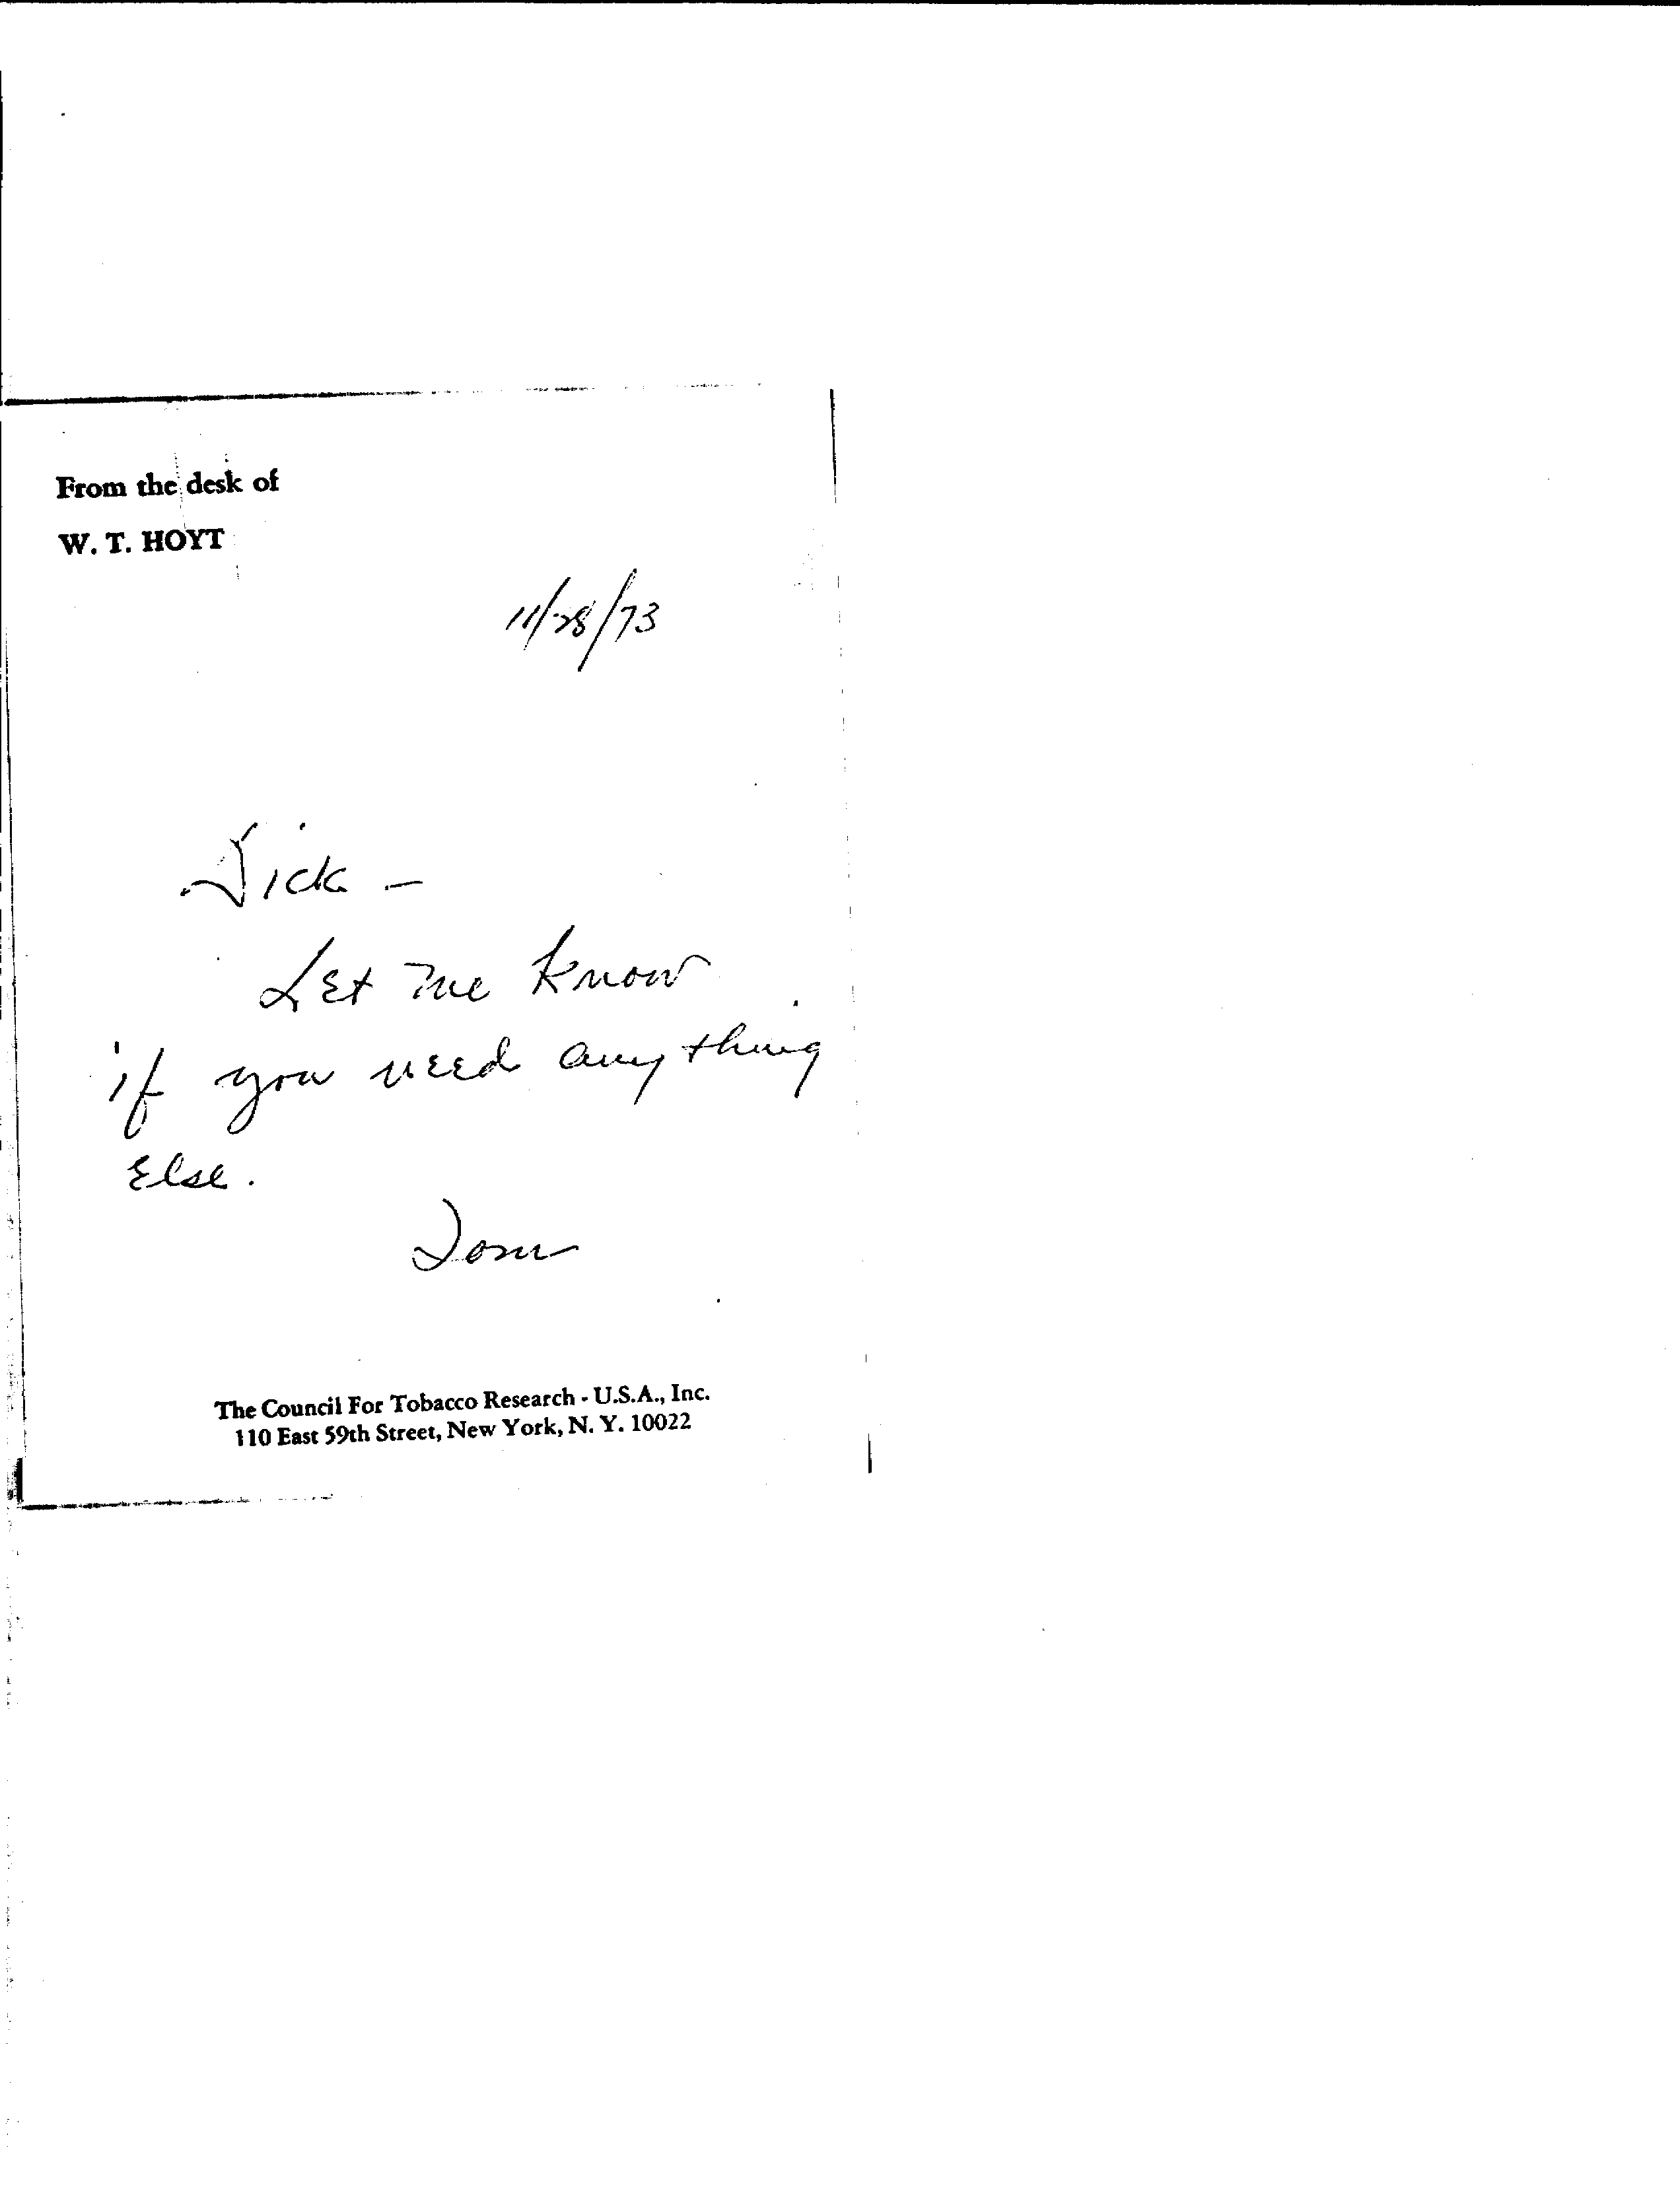 From the desk of
W. T. HOYT
11/28/73
Dick -
Let me know
if you need anything
Else.
Tom
The Council For Tobacco Research - U.S.A., Inc.
110 East 59th Street, New York, N. Y. 10022